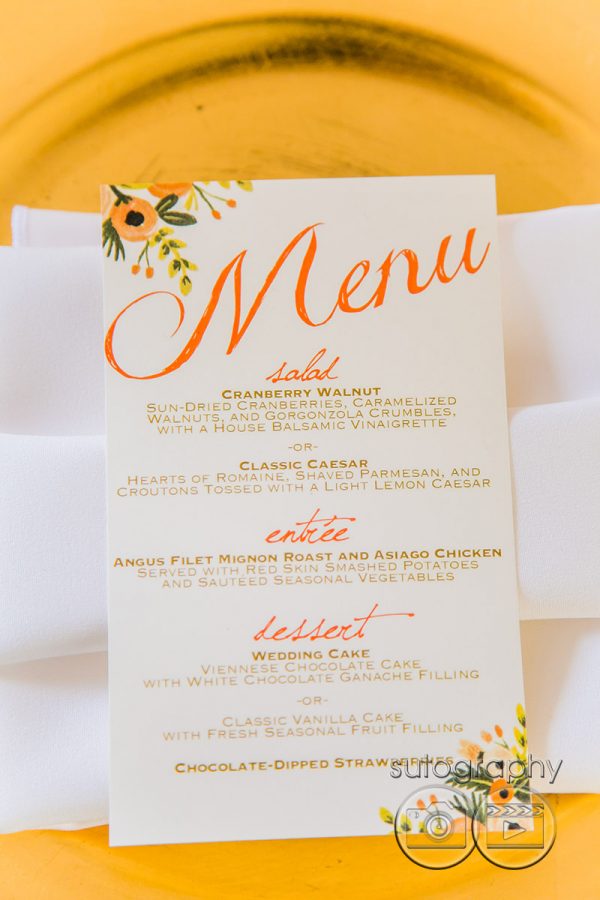 Menu
salad
Cranberry Walnut
Sun-Dried Cranberries, Caramelized
Walnuts, and Gorgonzola Crumbles,
with a House Balsamic Vinaigrette
-or-
Classic Caesar
Hearts of Romaine, Shaved Parmesan, and
Croutons Tossed with a Light Lemon Caesar
entrée
Angus Filet Mignon Roast and Asiago Chicken
Served with Red Skin Smashed Potatoes
and Sauteed Seasonal Vegetables
dessert
Wedding Cake
Viennese Chocolate Cake
with White Chocolate Ganache Filling
-or-
Classic Vanilla Cake
with Fresh Seasonal Fruit Filling
Chocolate-Dipped Strawberries
sutography